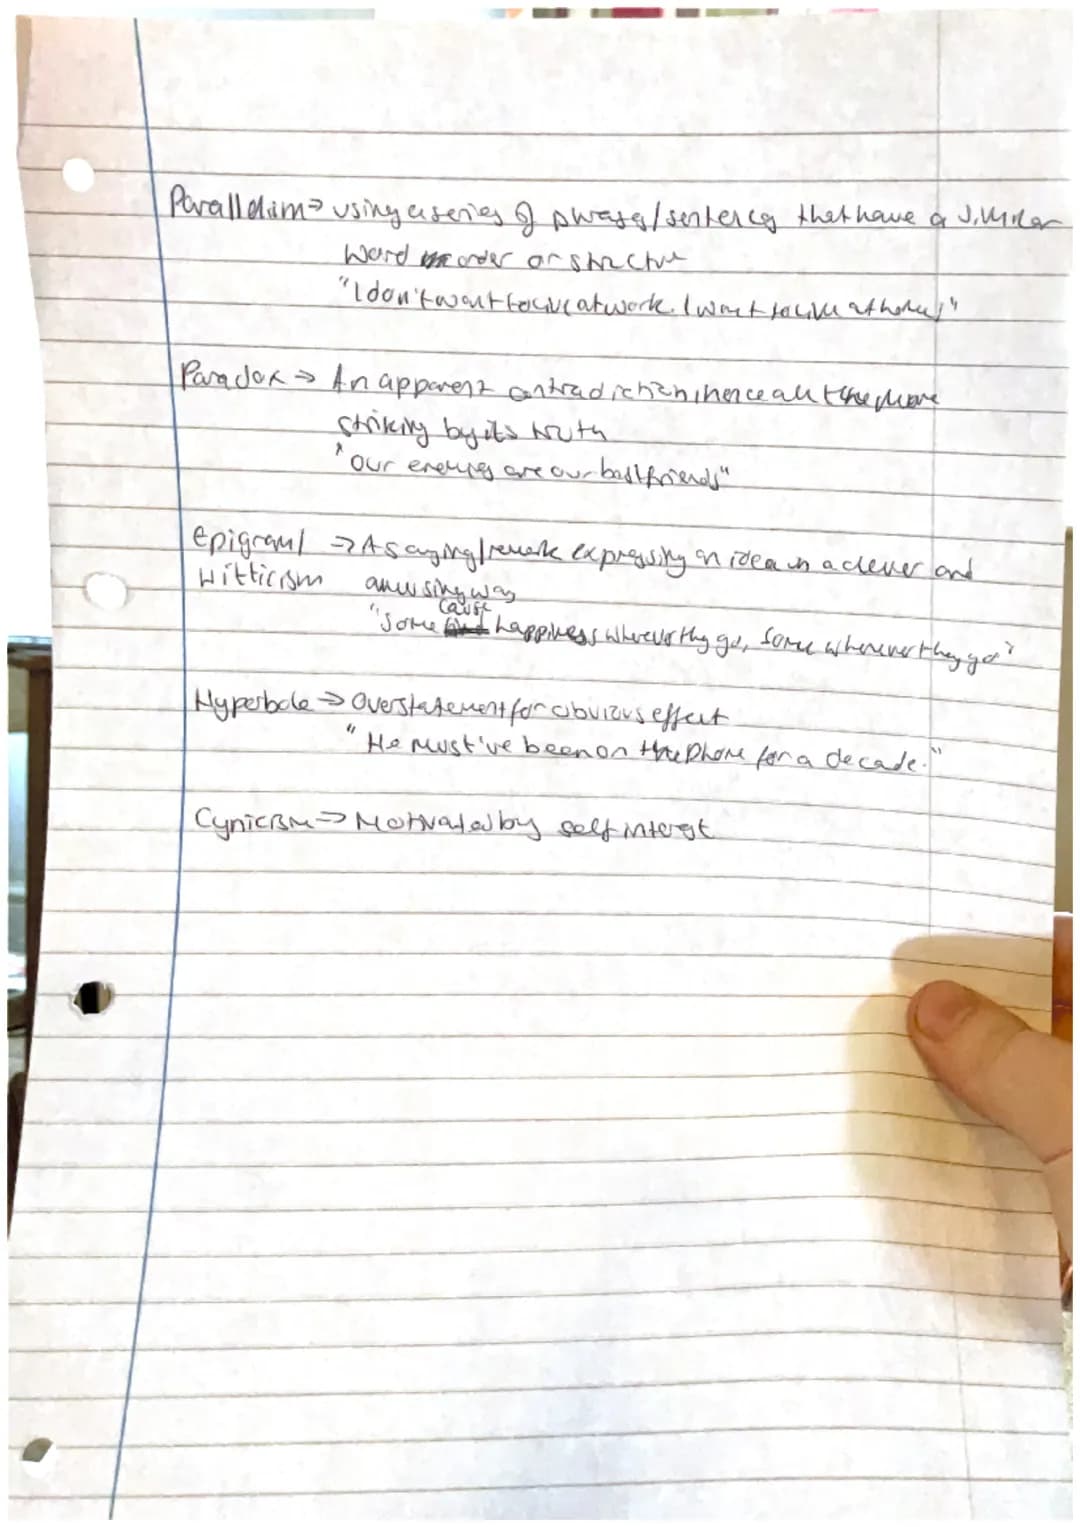 Parallelism → using a series of phrases/sentences that have a similar
word order or structure
"I don't want to live at work. I want to live at home,"
Paradox → An apparent contradiction, hence all the more
striking by its truth
"Our enemies are our best friends"
Epigram/ → A saying/remark expressing an idea in a clever and
Witticism amusing way
"Some cause happiness wherever they go, some whenever they go"
Hyperbole → Overstatement for obvious effect
"He must've been on the phone for a decade."
Cynicism → Motivated by self interest